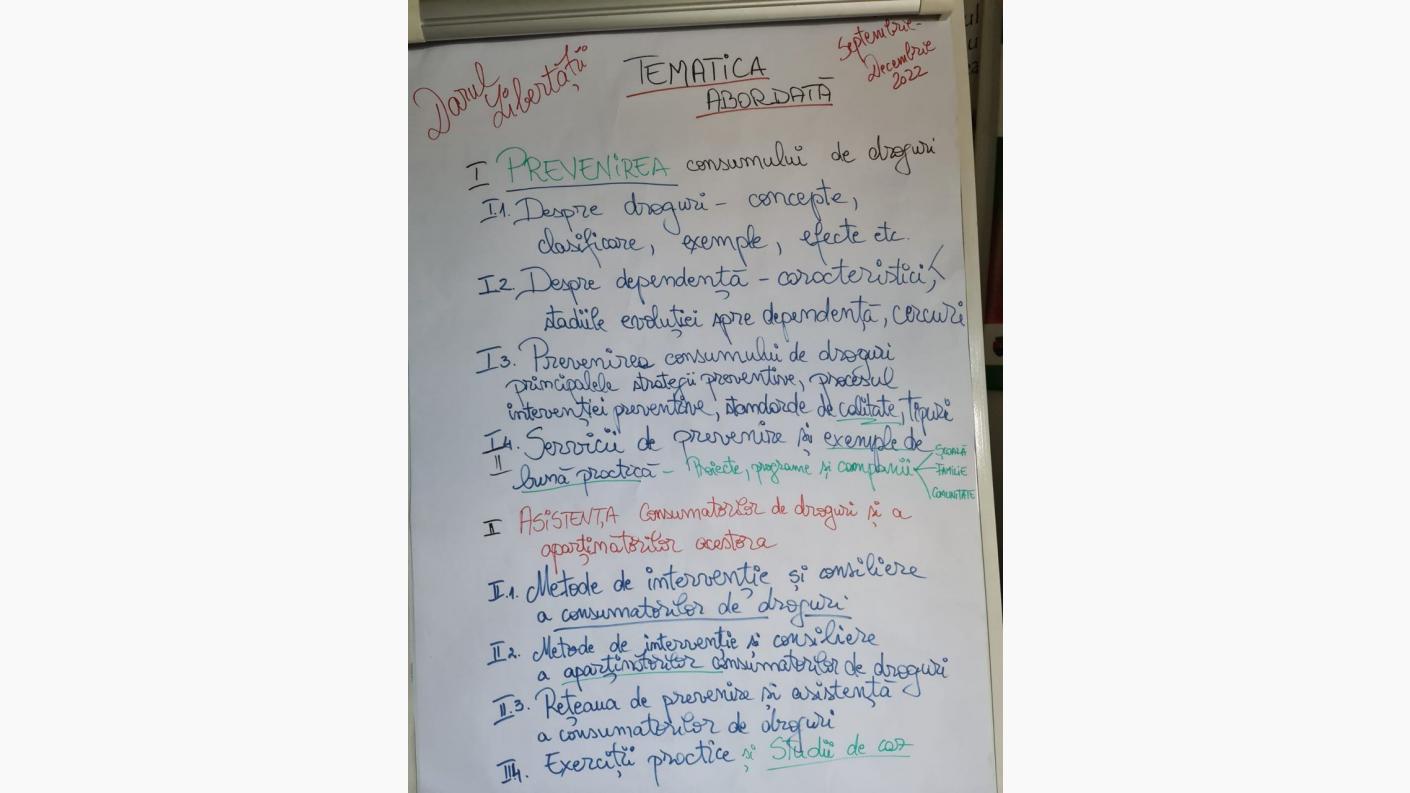 Darul
Libertății
TEMATICA
ABORDATĂ
Septembrie-
Decembrie
2022
I PREVENIREA consumului de droguri
I.1. Despre droguri - concepte,
clasificare, exemple, efecte etc.
I.2. Despre dependență - caracteristici,
stadiile evoluției spre dependență, cercuri
I3. Prevenirea consumului de droguri
principalele strategii preventive, procesul
intervenției preventive, standarde de calitate, tipuri
I4. Servicii de prevenire și exemple de
II
bună practică - Proiecte, programe și campanii
ȘCOALĂ
FAMILIE
COMUNITATE
II ASISTENȚA Consumatorilor de droguri și a
aparținătorilor acestora
II.1. Metode de intervenție și consiliere
a consumatorilor de droguri
II2. Metode de intervenție și consiliere
a aparținătorilor consumatorilor de droguri
II.3. Rețeaua de prevenire și asistență
a consumatorilor de droguri
II4. Exerciții practice și Studii de caz